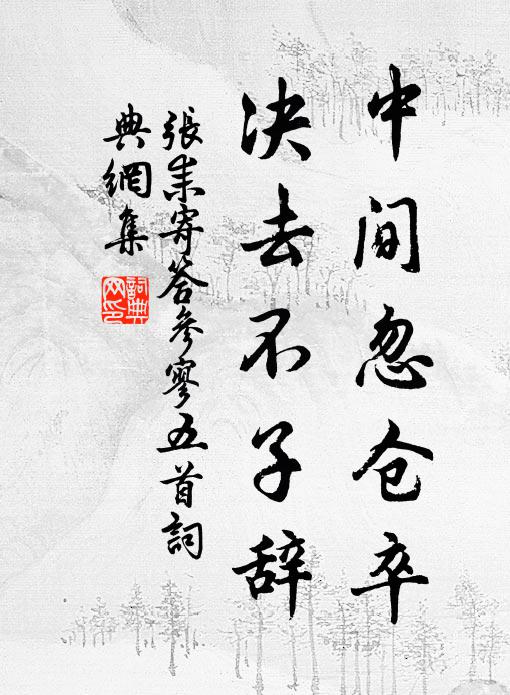 中间忽仓卒
决去不子辞
張耒寄答參寥五首詞
典網集
詞典网印